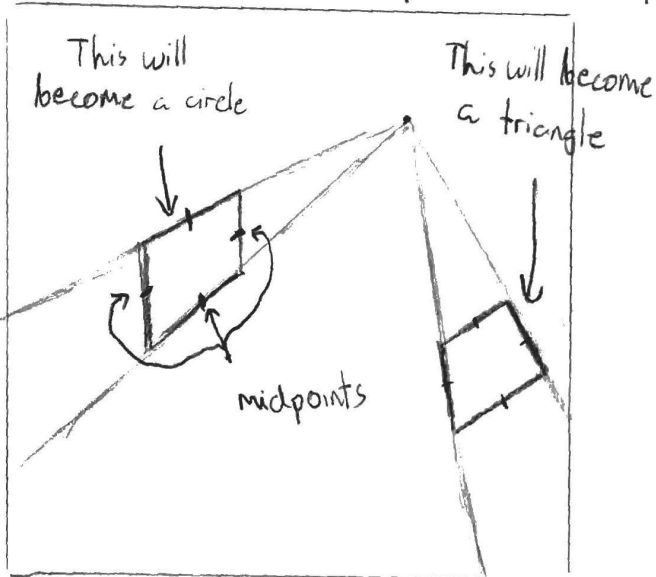 This will
become a circle
This will become
a triangle
midpoints